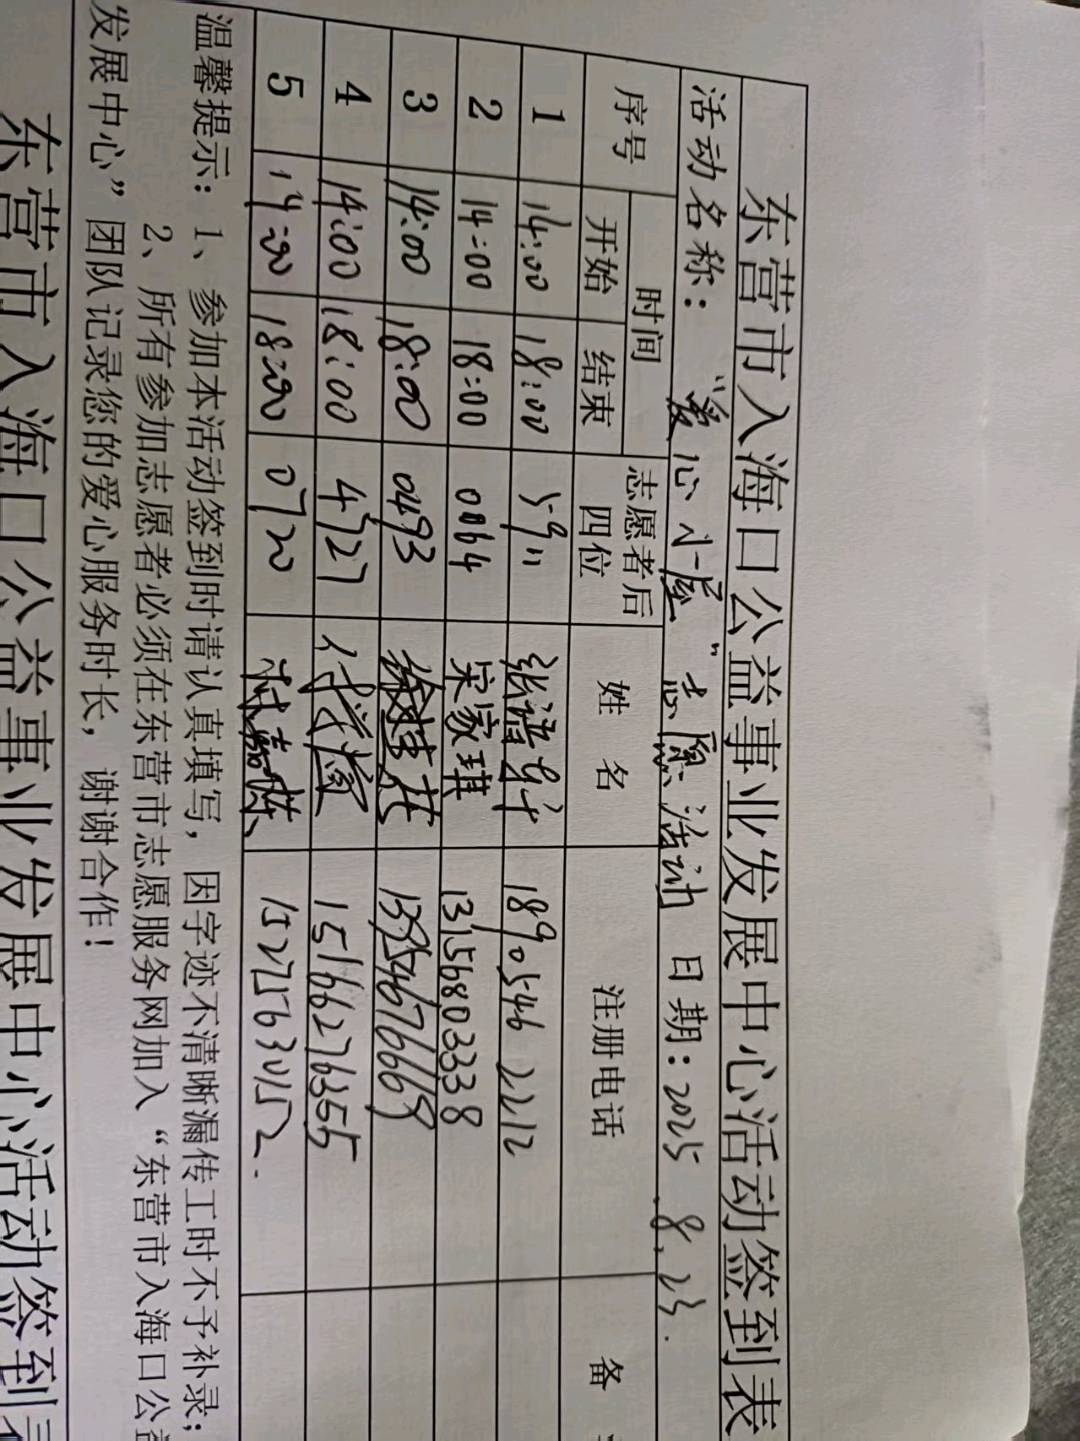 东营市入海口公益事业发展中心活动签到表
活动名称：“爱心小屋”志愿活动 日期：2025.8.23.
序号 时间 志愿者后四位 姓名 注册电话 备
开始 结束
1 14:00 18:00 5911 18905462212
2 14:00 18:00 0064 宋家琪 13156803338
3 14:00 18:00 0493
4 14:00 18:00 4727 15166276355
5 14:00 18:00 0720 15272563052.
温馨提示：1、参加本活动签到时请认真填写，因字迹不清晰漏传工时不予补录；
2、所有参加志愿者必须在东营市志愿服务网加入“东营市入海口公益
发展中心”团队记录您的爱心服务时长，谢谢合作！
东营市入海口公益事业发展中心活动签到表